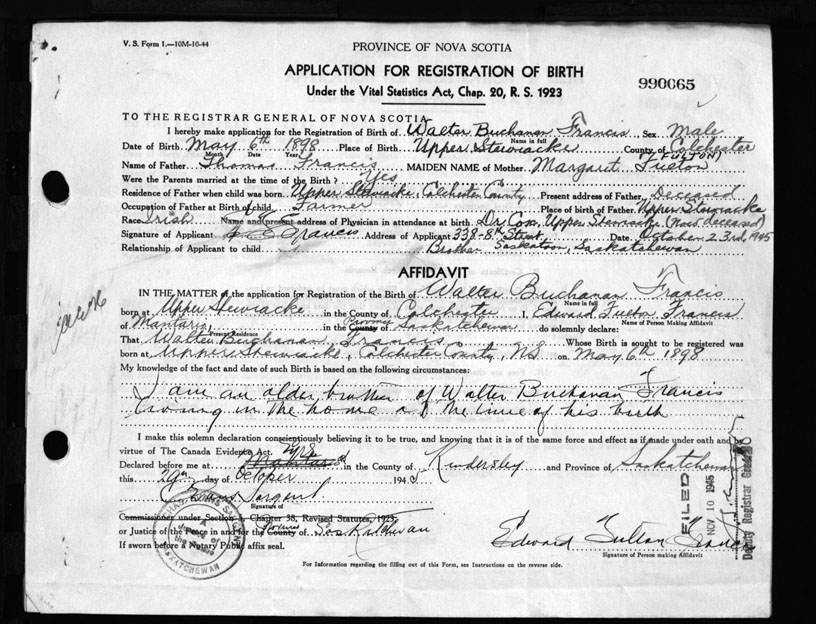 V. S. Form 1.—10M-10-44
PROVINCE OF NOVA SCOTIA
APPLICATION FOR REGISTRATION OF BIRTH
990065
Under the Vital Statistics Act, Chap. 20, R. S. 1923
TO THE REGISTRAR GENERAL OF NOVA SCOTIA
I hereby make application for the Registration of Birth of Walter Buchanan Francis Sex Male
Name in full
Date of Birth May 6th 1898 Place of Birth Upper Stewiacke County of Colchester
Month Date Year
(FULTON)
Name of Father Thomas Francis MAIDEN NAME of Mother Margaret
Were the Parents married at the time of the Birth? Yes
Residence of Father when child was born Upper Stewiacke, Colchester County Present address of Father Deceased
Occupation of Father at Birth of child Farmer Place of birth of Father Upper Stewiacke
Race Irish Name and present address of Physician in attendance at birth Dr Cox, Upper Stewiacke (Now deceased)
Signature of Applicant E Francis Address of Applicant 338-8th Street, Date October 23rd, 1945
Relationship of Applicant to child Brother Saskatoon, Saskatchewan
AFFIDAVIT
IN THE MATTER of the application for Registration of the Birth of Walter Buchanan Francis
Name in full
born at Upper Stewiacke in the County of Colchester I, Edward Francis
Name of Person Making Affidavit
of Mantario in the County Province of Saskatchewan do solemnly declare:
Present Residence
That Walter Buchanan Francis Whose Birth is sought to be registered was
born at Upper Stewiacke, Colchester County, NS on May 6th 1898
My knowledge of the fact and date of such Birth is based on the following circumstances:
I am an older brother of Walter Buchanan Francis
living in the home at the time of his birth
I make this solemn declaration conscientiously believing it to be true, and knowing that it is of the same force and effect as if made under oath and by
virtue of The Canada Evidence Act.
Declared before me at in the County of Kindersley and Province of Saskatchewan
this 29th day of October 194
Sargent
Signature of
Commissioner under Section Chapter 38, Revised Statutes, 1923
or Justice of the Peace in and for the County of Province Saskatchewan
If sworn before a Notary Public affix seal.
Edward Fulton Francis
Signature of Person making Affidavit
For Information regarding the filling out of this Form, see Instructions on the reverse side.
FILED
NOV 10 1945
Deputy Registrar General
SASKATCHEWAN